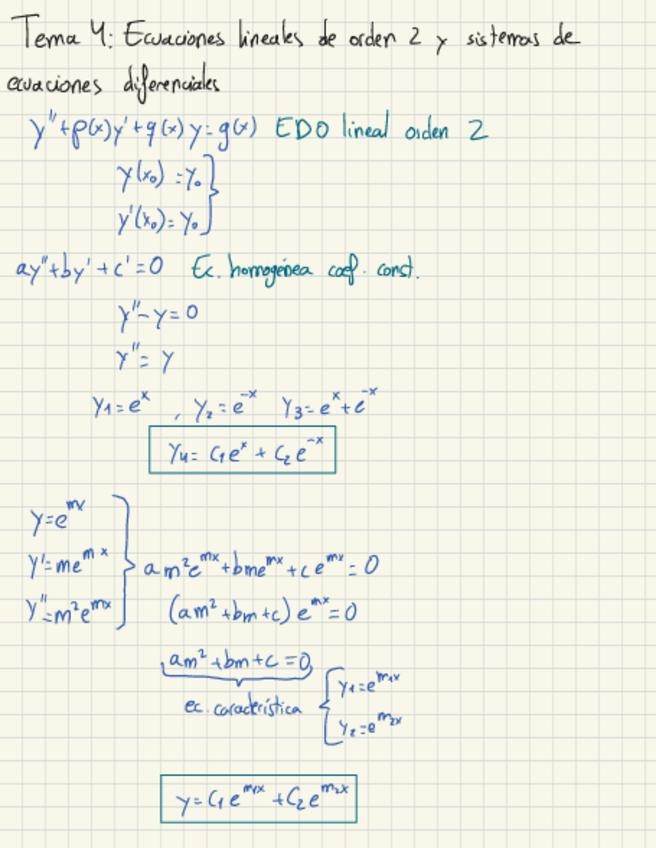 Tema 4: Ecuaciones lineales de orden 2 y sistemas de
ecuaciones diferenciales
y''+p(x)y'+q(x)y=g(x) EDO lineal orden 2
y(x₀)=y₀
y'(x₀)=y₀
ay''+by'+c'=0 Ec. homogénea coef. const.
y''-y=0
y''=y
y₁=eˣ , y₂=e⁻ˣ y₃=eˣ+e⁻ˣ
y₄=c₁eˣ+c₂e⁻ˣ
y=e^{mx}
y'=me^{mx} am²e^{mx}+bme^{mx}+ce^{mx}=0
y''=m²e^{mx} (am²+bm+c)e^{mx}=0
am²+bm+c=0
y₁=e^{m₁x}
ec. característica
y₂=e^{m₂x}
y=c₁e^{m₁x}+c₂e^{m₂x}